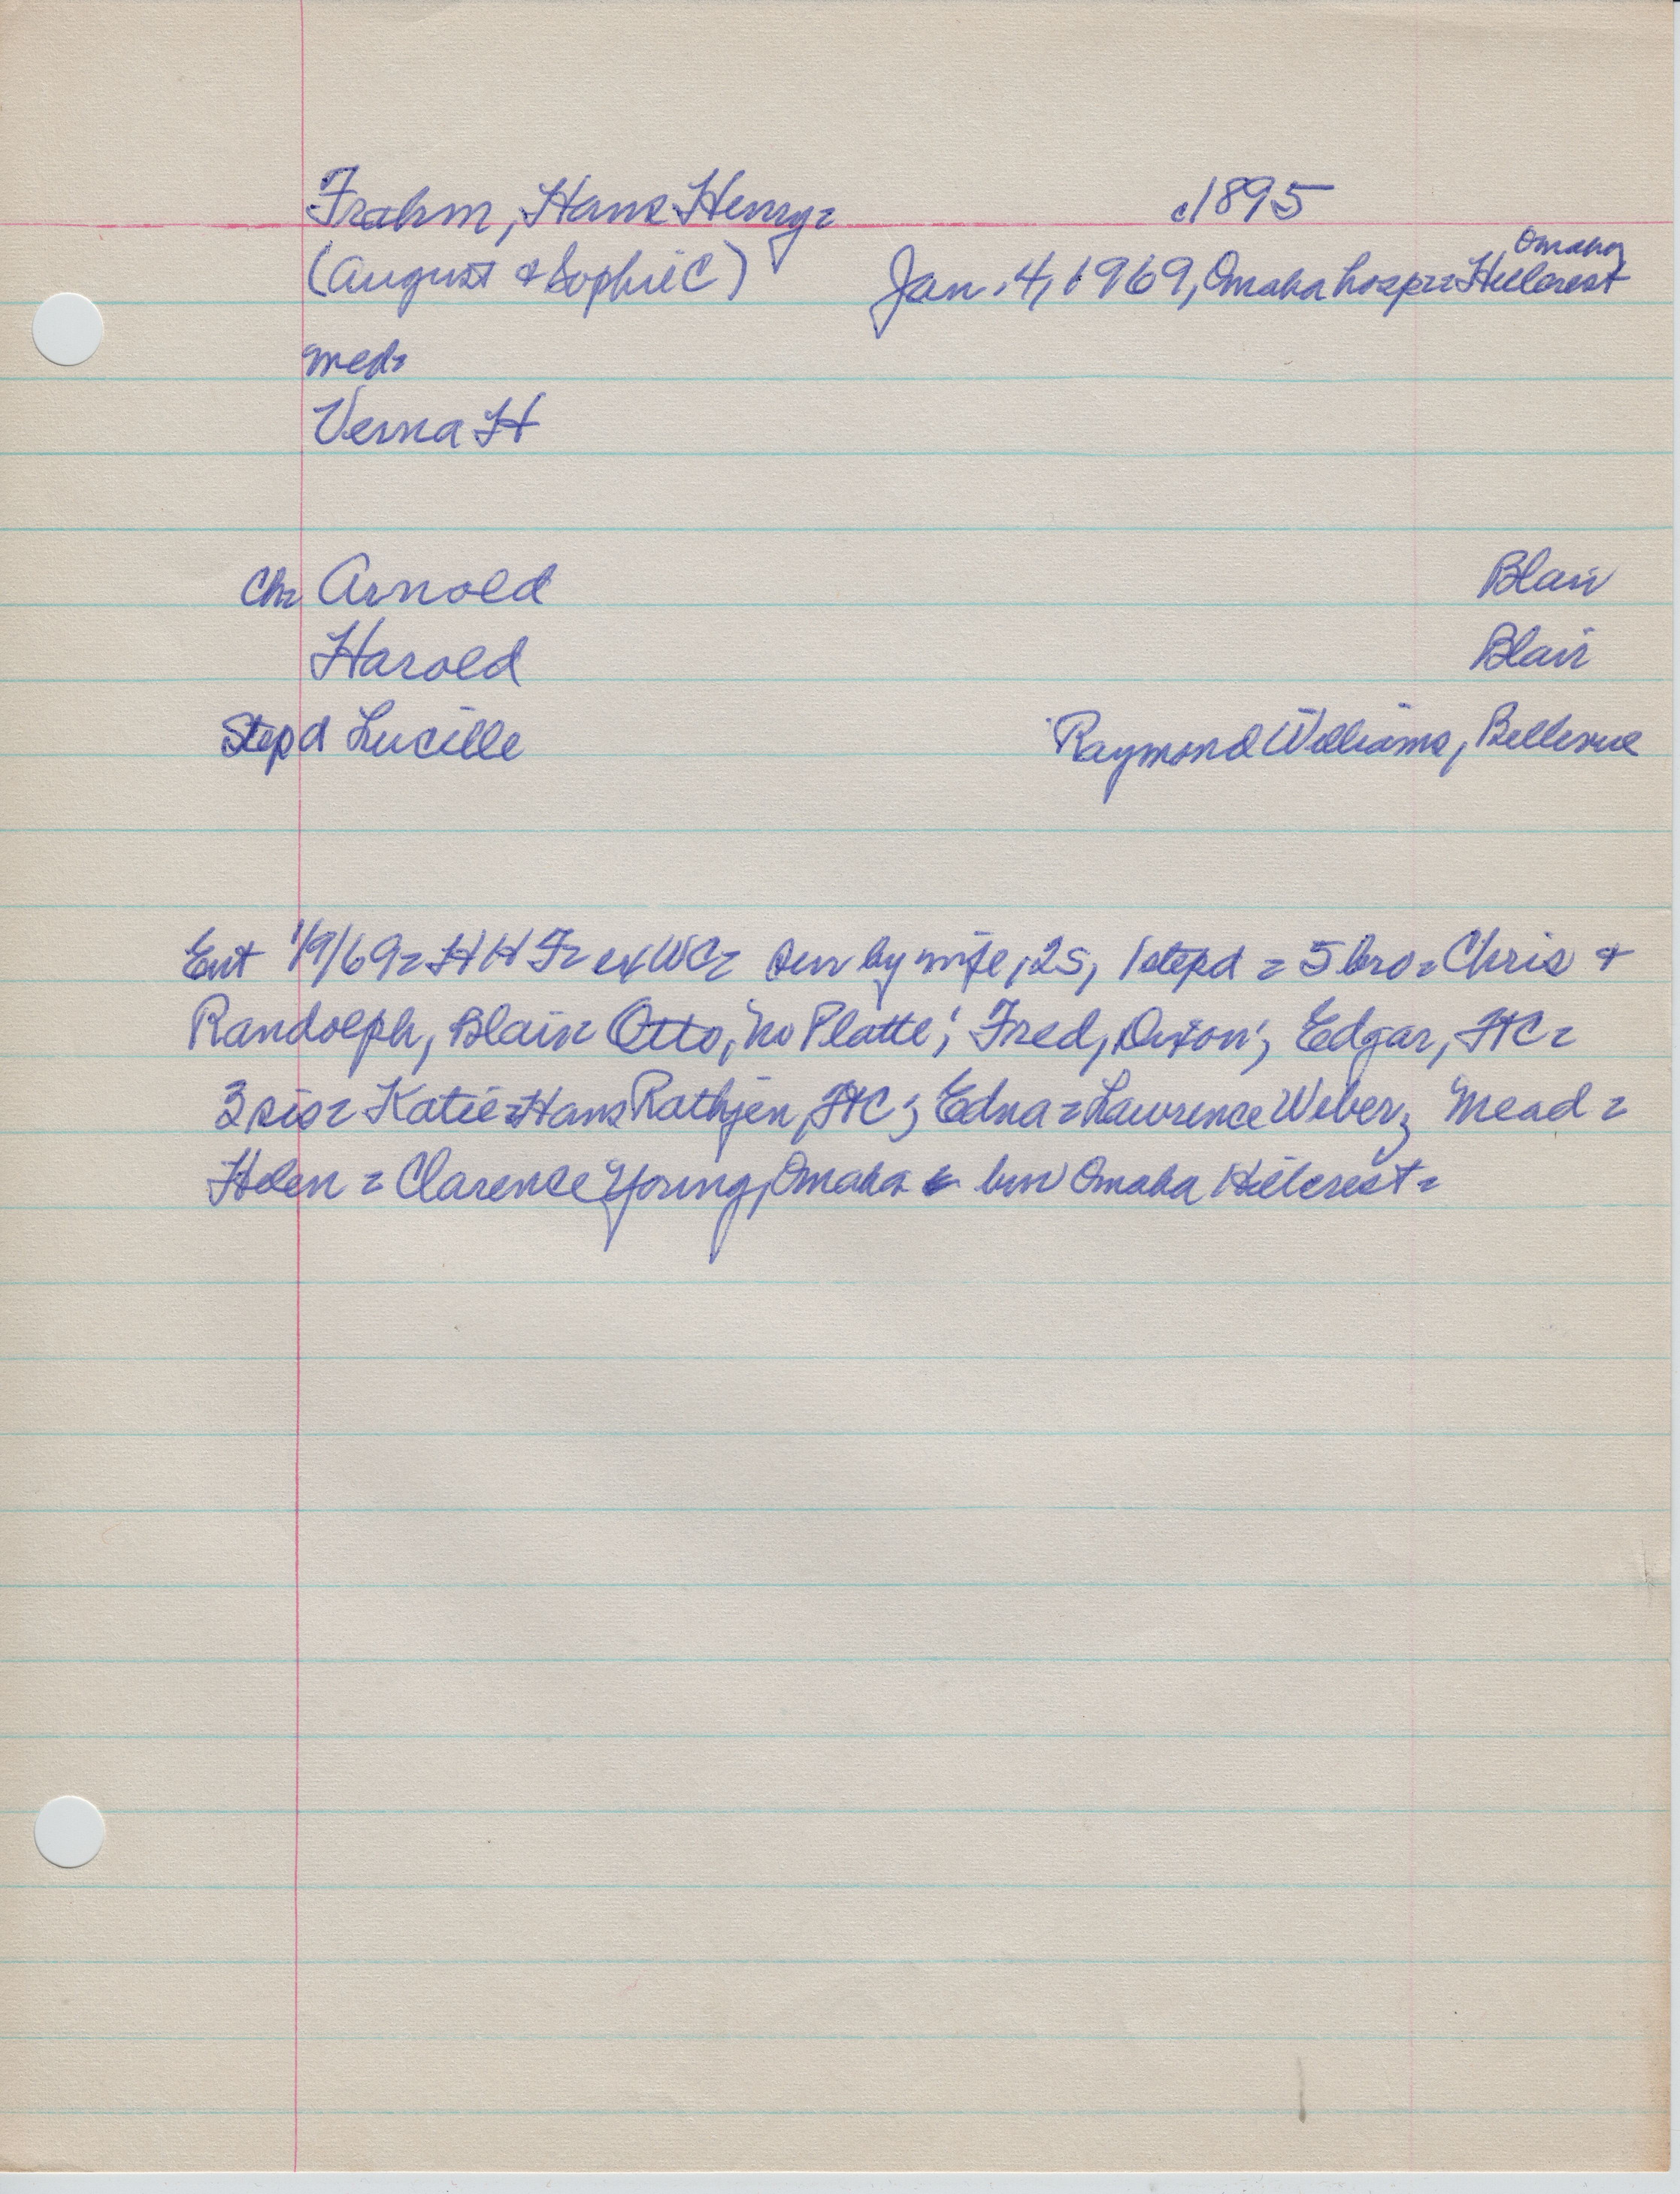 Frahm, Hans Henry= c1895
(August & Sophie C) Jan. 4, 1969, Omaha hosp== Hillcrest Omaha
med=
Verna H
Ch= Arnold Blair
Harold Blair
Stepd Lucille Raymond Williams, Bellevue
Ent 1/9/69= H H Fr ex WC= sur by wife, 2s, 1 stepd = 5 bro= Chris &
Randolph, Blair Otto, No Platte; Fred, Dixon; Edgar, FtC=
3 sis= Katie=Hans Rathjen, FtC; Edna=Lawrence Weber, Mead=
Helen = Clarence Young, Omaha bur Omaha Hillcrest=